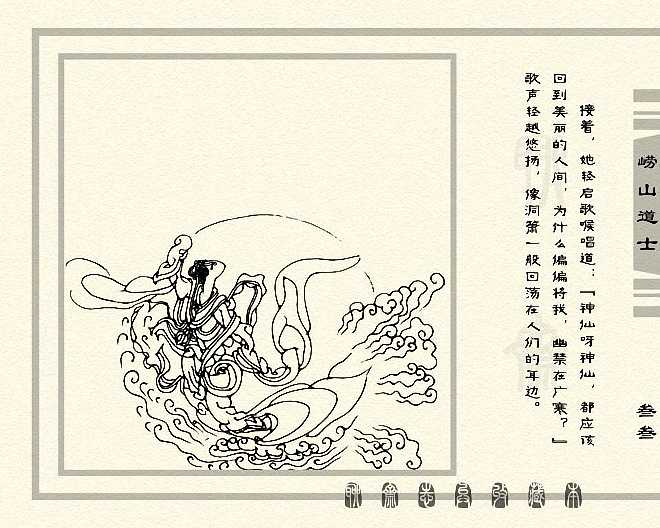 接着，她轻启歌喉唱道：『神仙呀神仙，都应该
回到美丽的人间，为什么偏偏将我，幽禁在广寒？』
歌声轻越悠扬，像洞箫一般回荡在人们的耳边。
崂山道士
叁叁